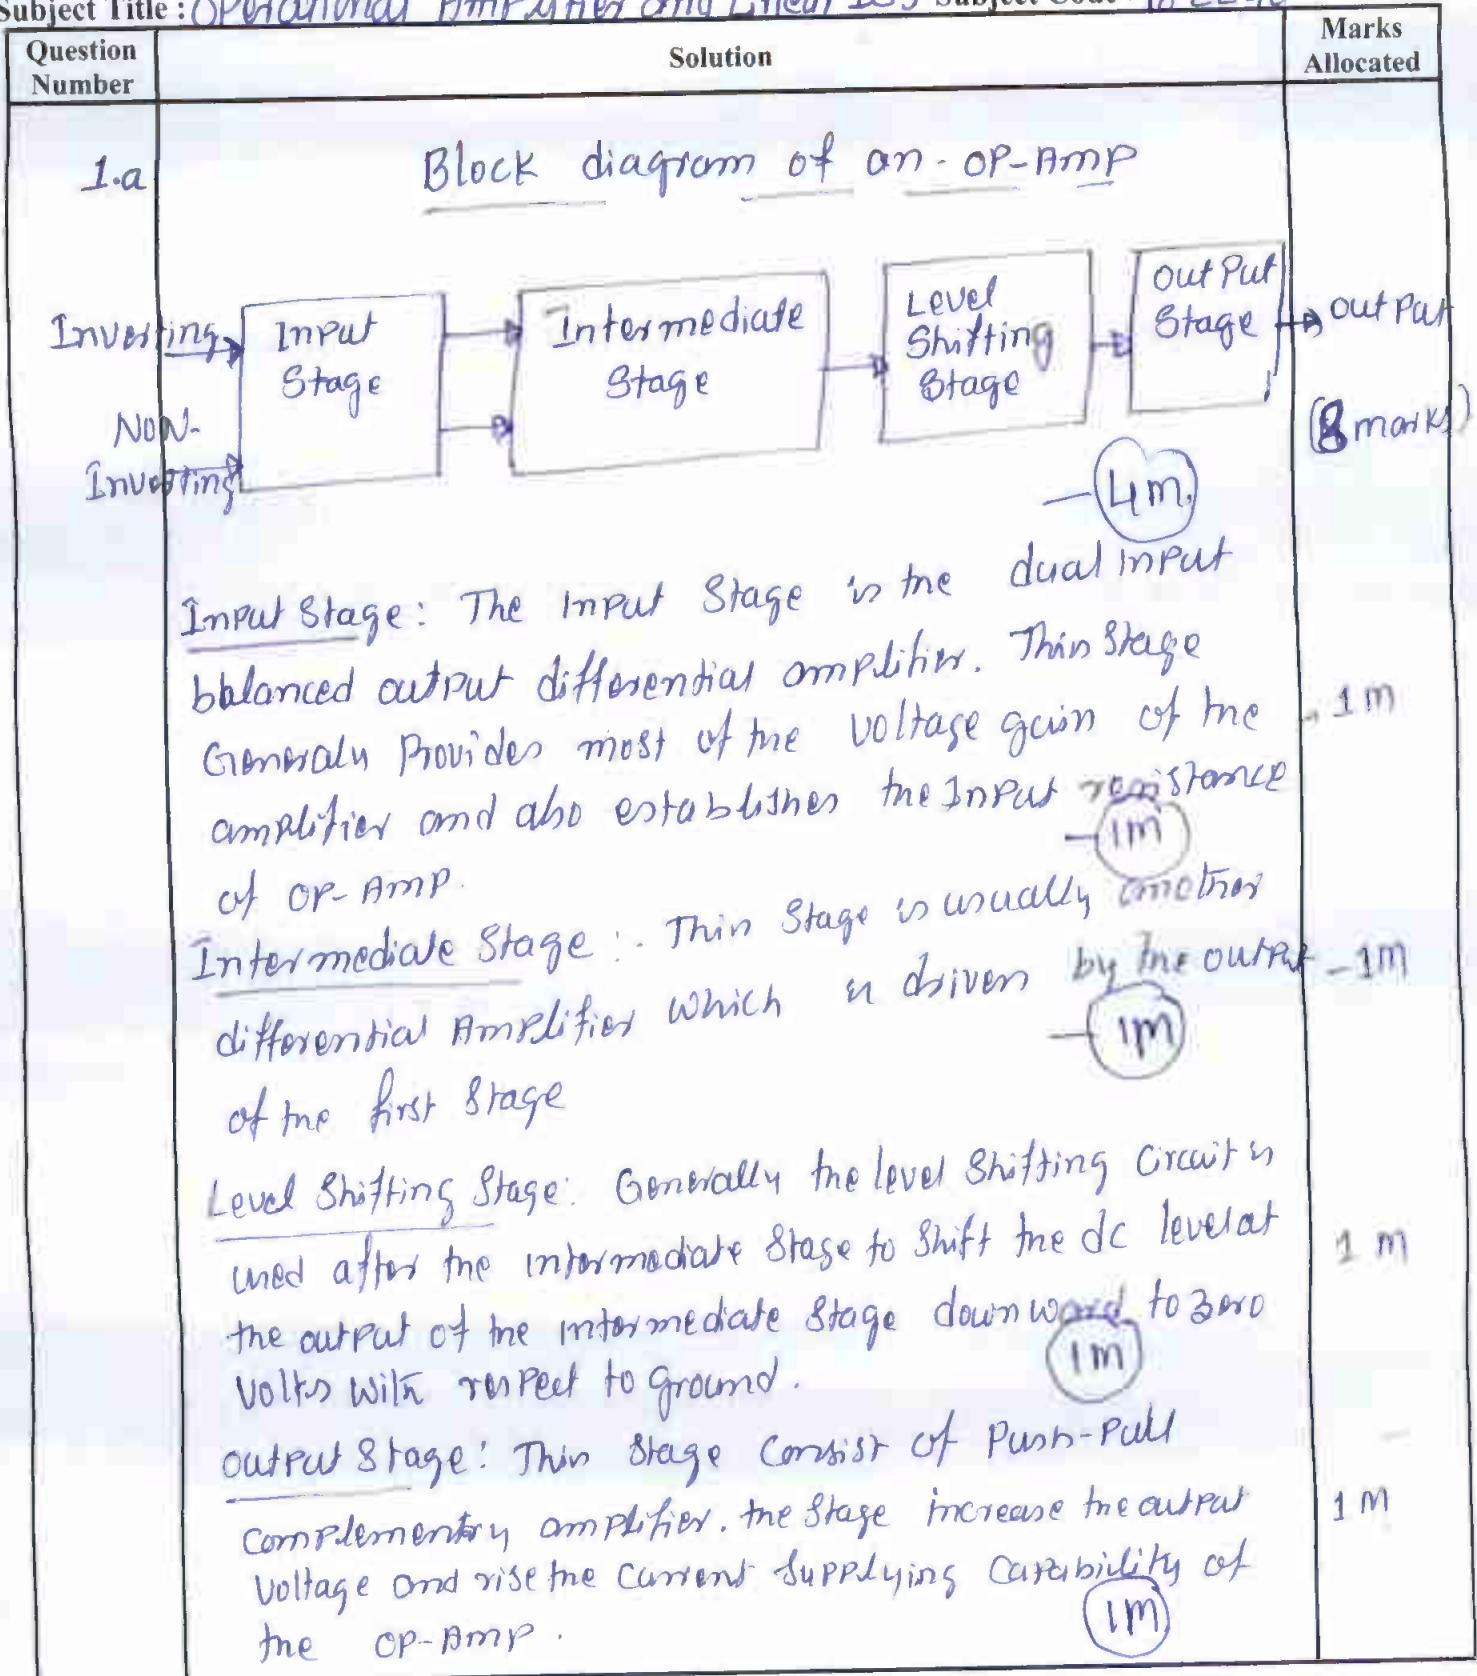 Subject Title : Operational Amplifier and Linear ICs Subject Code :
Question Number
Solution
Marks Allocated
1.a
Block diagram of an OP-Amp
Inverting
Non-Inverting
Input Stage
Intermediate Stage
Level Shifting Stage
Output Stage
output
(8 marks)
— 4m.
Input Stage: The Input Stage is the dual input
bblanced output differential amplifier. This Stage
Generaly Provides most of the voltage gain of the
- 1M
amplifier and also establishes the Input resistance
of OP-Amp.
— 1M
Intermediate Stage :. This Stage is usually another
differential Amplifier which is driven by the output
- 1M
of the first Stage
— 1M
Level Shifting Stage: Generally the level Shifting Circuit is
used after the intermediate Stage to Shift the dc level at
1 M
the output of the intermediate Stage downward to zero
Volts with respect to ground.
1M
output Stage: This Stage Consist of Push-Pull
Complementry amplifier. the Stage increase the output
1 M
voltage and rise the current Supplying Capability of
the OP-Amp.
1M